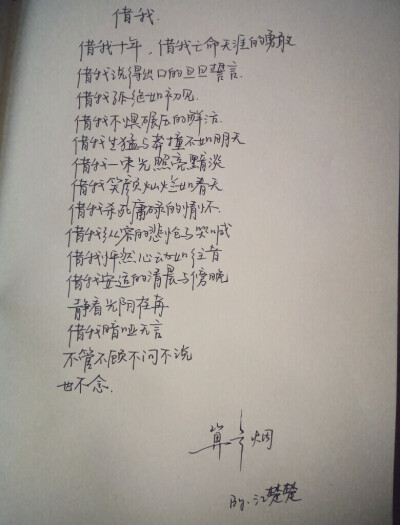 借我.
借我十年，借我亡命天涯的勇敢
借我说得出口的旦旦誓言.
借我孤绝如初见.
借我不惧碾压的鲜活.
借我生猛与莽撞不如明天
借我一束光照亮黯淡
借我笑颜灿烂如春天
借我杀死庸碌的情怀.
借我纵容的悲怆与哭喊
借我怦然心动如往昔
借我安适的清晨与傍晚
静看光阴荏苒
借我喑哑无言
不管不顾不问不说
也不念.
By.江楚楚